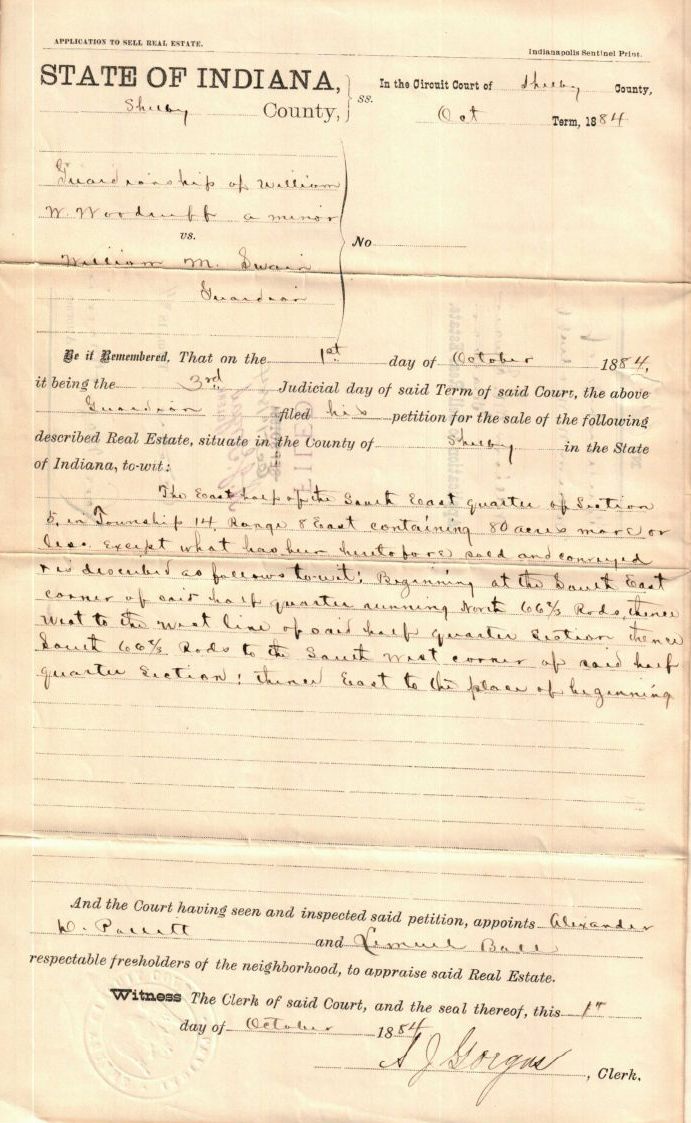 APPLICATION TO SELL REAL ESTATE.
Indianapolis Sentinel Print.
STATE OF INDIANA,
Shelby County,
ss.
In the Circuit Court of Shelby County,
Oct Term, 1884
Guardianship of William
W. Woodruff a minor
vs.
William M. Swain
Guardian
No
Be it Remembered, That on the 1st day of October 1884,
it being the 3rd Judicial day of said Term of said Court, the above
Guardian filed his petition for the sale of the following
described Real Estate, situate in the County of Shelby in the State
of Indiana, to-wit:
The East half of the South East quarter of Section
5, in Township 14, Range 8 East containing 80 acres more or
less. Except what has been heretofore sold and conveyed
& is described as follows to wit: Beginning at the South East
corner of said half quarter running North 66⅔ Rods, thence
West to the West line of said half quarter Section thence
South 66⅔ Rods to the South West corner of said half
quarter Section; thence East to the place of beginning
And the Court having seen and inspected said petition, appoints Alexander
and Lemuel Ball
respectable freeholders of the neighborhood, to appraise said Real Estate.
Witness The Clerk of said Court, and the seal thereof, this 1st
day of October 1884
A J Gorgas, Clerk.